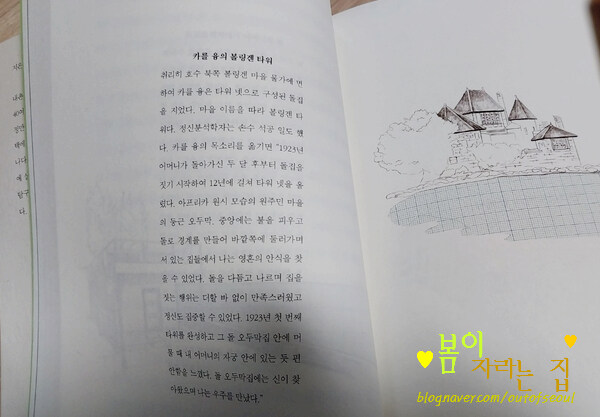 카를 융의 볼링겐 타워
취리히 호수 북쪽 볼링겐 마을 물가에 면
하여 카를 융은 타워 넷으로 구성된 돌집
을 지었다. 마을 이름을 따라 볼링겐 타
워다. 정신분석학자는 손수 석공 일도 했
다. 카를 융의 목소리를 옮기면 "1923년
어머니가 돌아가신 두 달 후부터 돌집을
짓기 시작하여 12년에 걸쳐 타워 넷을 올
렸다. 아프리카 원시 모습의 원주민 마을
의 둥근 오두막. 중앙에는 불을 피우고
돌로 경계를 만들어 바깥쪽에 둘러가며
서 있는 집들에서 나는 영혼의 안식을 찾
을 수 있었다. 돌을 다듬고 나르며 집을
짓는 행위는 더할 바 없이 만족스러웠고
정신도 집중할 수 있었다. 1923년 첫 번째
타워를 완성하고 그 돌 오두막집 안에 머
물 때 내 어머니의 자궁 안에 있는 듯 편
안함을 느꼈다. 돌 오두막집에는 신이 찾
아왔으며 나는 우주를 만났다."
봄이
자라는 집